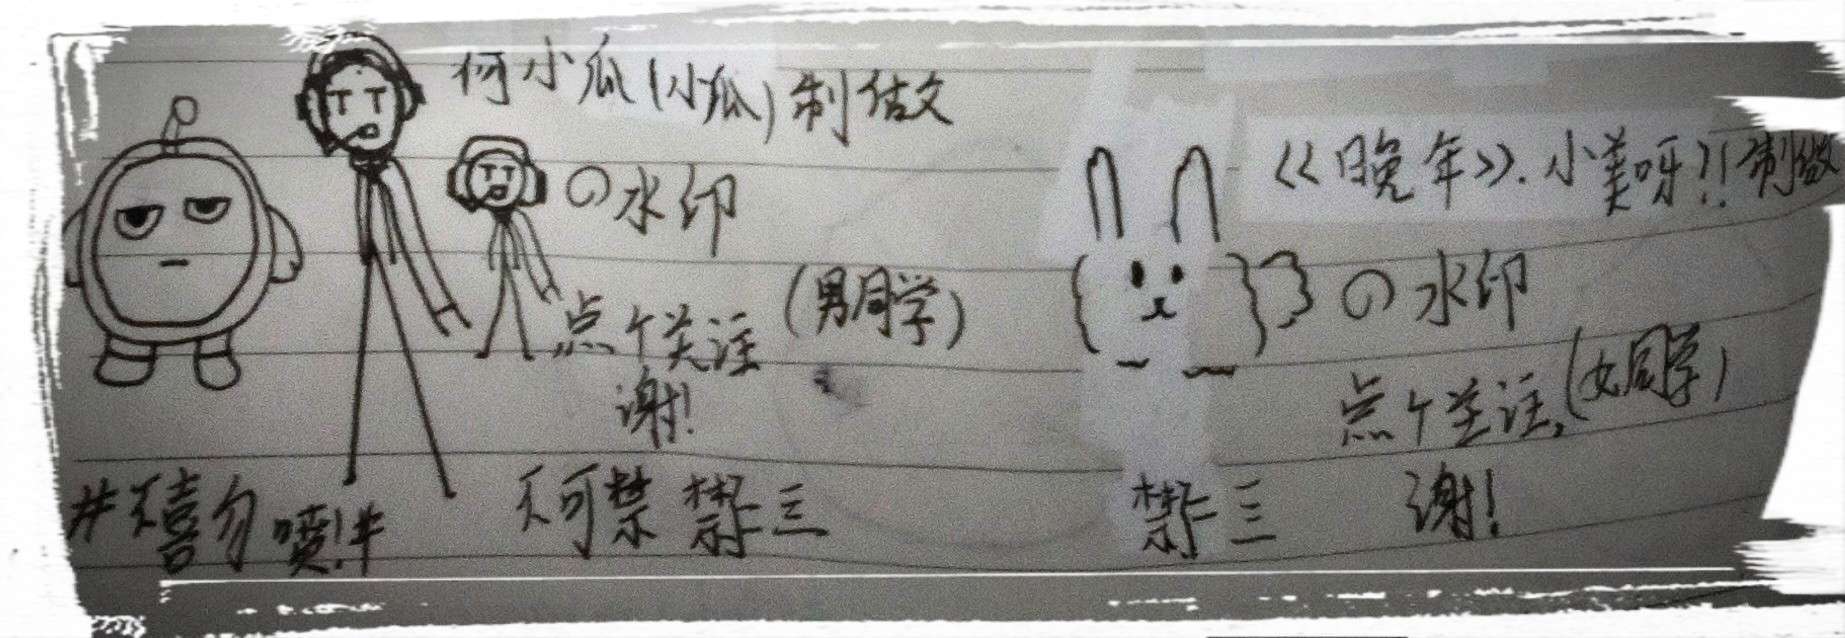 何小瓜(小瓜)制做文
の水印
点个关注
谢!
(男同学)
#不喜勿喷!#
不可禁 禁二三
《晚年》.小美呀!!制做
の水印
点个关注,
(女同学)
谢!
禁二三